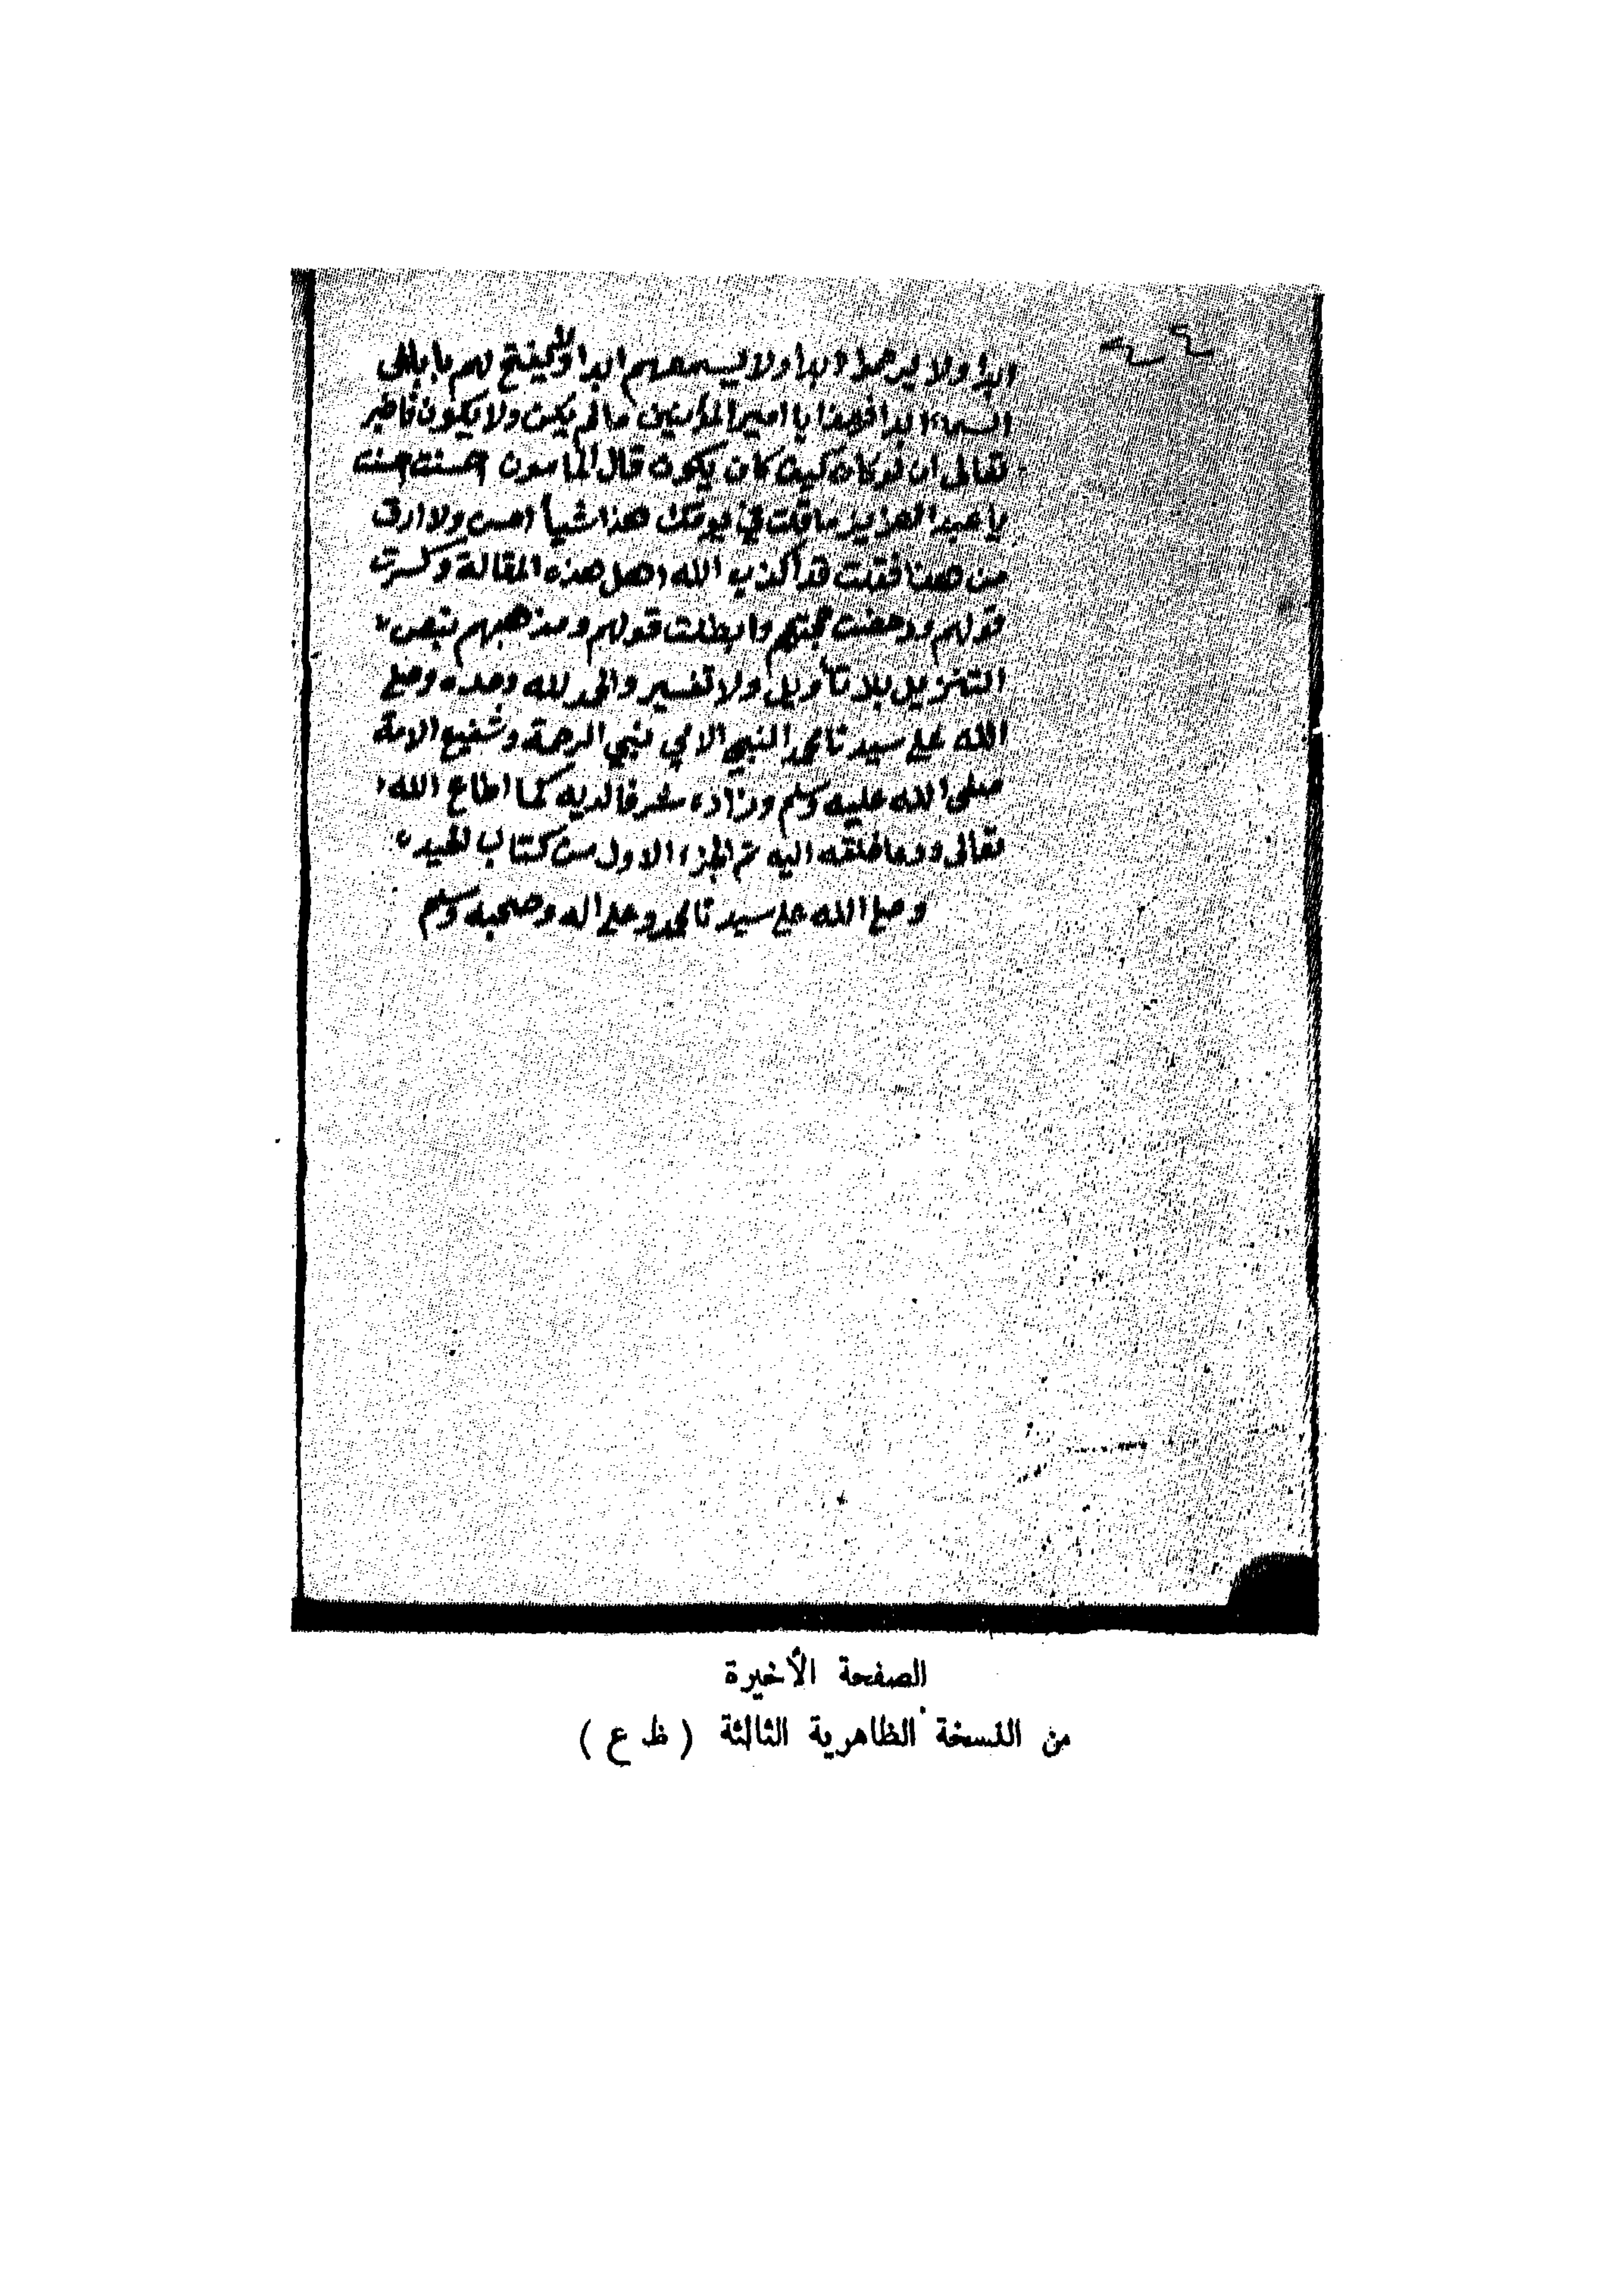 ابدا ولا يرحموا ابدا ولا يسمعهم ابدا ولا يفتح لهم بابا في
السماء ابدا فهذا يا امير المؤمنين مالم يكن ولا يكون فاخبر
تعالى ان لو كان كيف كان يكون قال المأمون احسنت احسنت
يا عبد العزيز ما قلت في يومك هذا شيأ احسن ولا ارق
من هذا فقلت قد اكذب الله اهل هذه المقالة وكسرت
قولهم ودحضت حجتهم وابطلت قولهم ومذهبهم بنص
التنزيل بلا تأويل ولا تفسير والحمد لله وحده وصلى
الله على سيدنا محمد النبي الامي نبي الرحمة وشفيع الامة
صلى الله عليه وسلم وزاده شرفا لديه كما اطاع الله
تعالى ودعا خلقه اليه تم الجزء الاول من كتاب الحيده
وصلى الله على سيدنا محمد وعلى اله وصحبه وسلم
الصفحة الأخيرة
من النسخة الظاهرية الثالثة ( ظ ع )